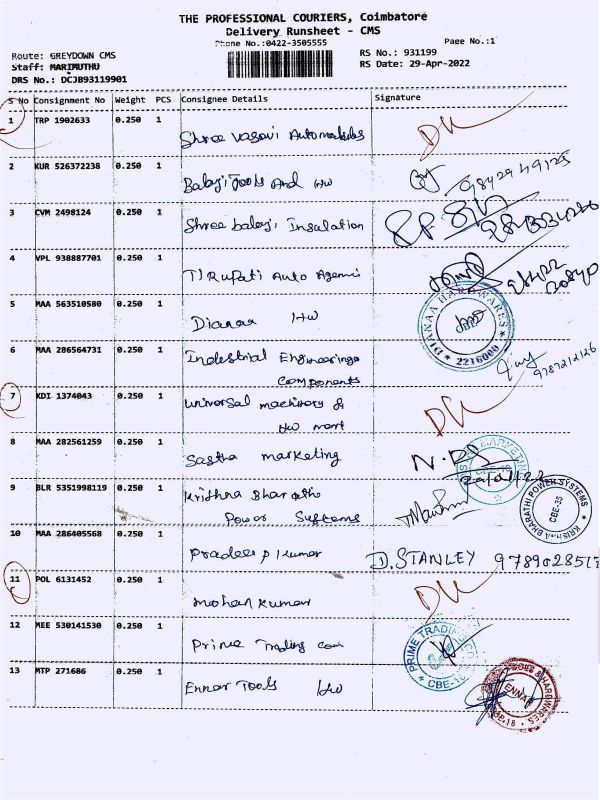 THE PROFESSIONAL COURIERS, Coimbatore
Delivery Runsheet - CMS
Phone No.:0422-3505555
Page No.:1
Route: GREYDOWN CMS
RS No.: 931199
Staff: MARIMUTHU
RS Date: 29-Apr-2022
DRS No.: DCJB93119901
S No Consignment No Weight PCS Consignee Details Signature
1 TRP 1902633 0.250 1
Shree Vasavi Automobiles
2 KUR 526372238 0.250 1
Balaji Tools And HW
9842949125
3 CVM 2498124 0.250 1
Shree balaji Insulation
4 VPL 938887701 0.250 1
TIRupati Auto Agenci
5 MAA 563510580 0.250 1
Dianaa HW
DIANAA HARDWARES
2216000
6 MAA 286564731 0.250 1
Industrial Engineering
Components
9787212126
7 KDI 1374043 0.250 1
Universal machinery &
HW mart
8 MAA 282561259 0.250 1
Sastha marketing
MARKETING
CBE-18
9 BLR 5351998119 0.250 1
Krishna Bharathi
Power Systems
KRISHNA BHARATHI POWER SYSTEMS
CBE-35
10 MAA 286405568 0.250 1
Pradeep Kumar
D. STANLEY
11 POL 6131452 0.250 1
mohan kumar
12 MEE 530141530 0.250 1
Prime Trading Com
PRIME TRADING
CBE-18
13 MTP 271686 0.250 1
Ennar Tools HW
ENNAR